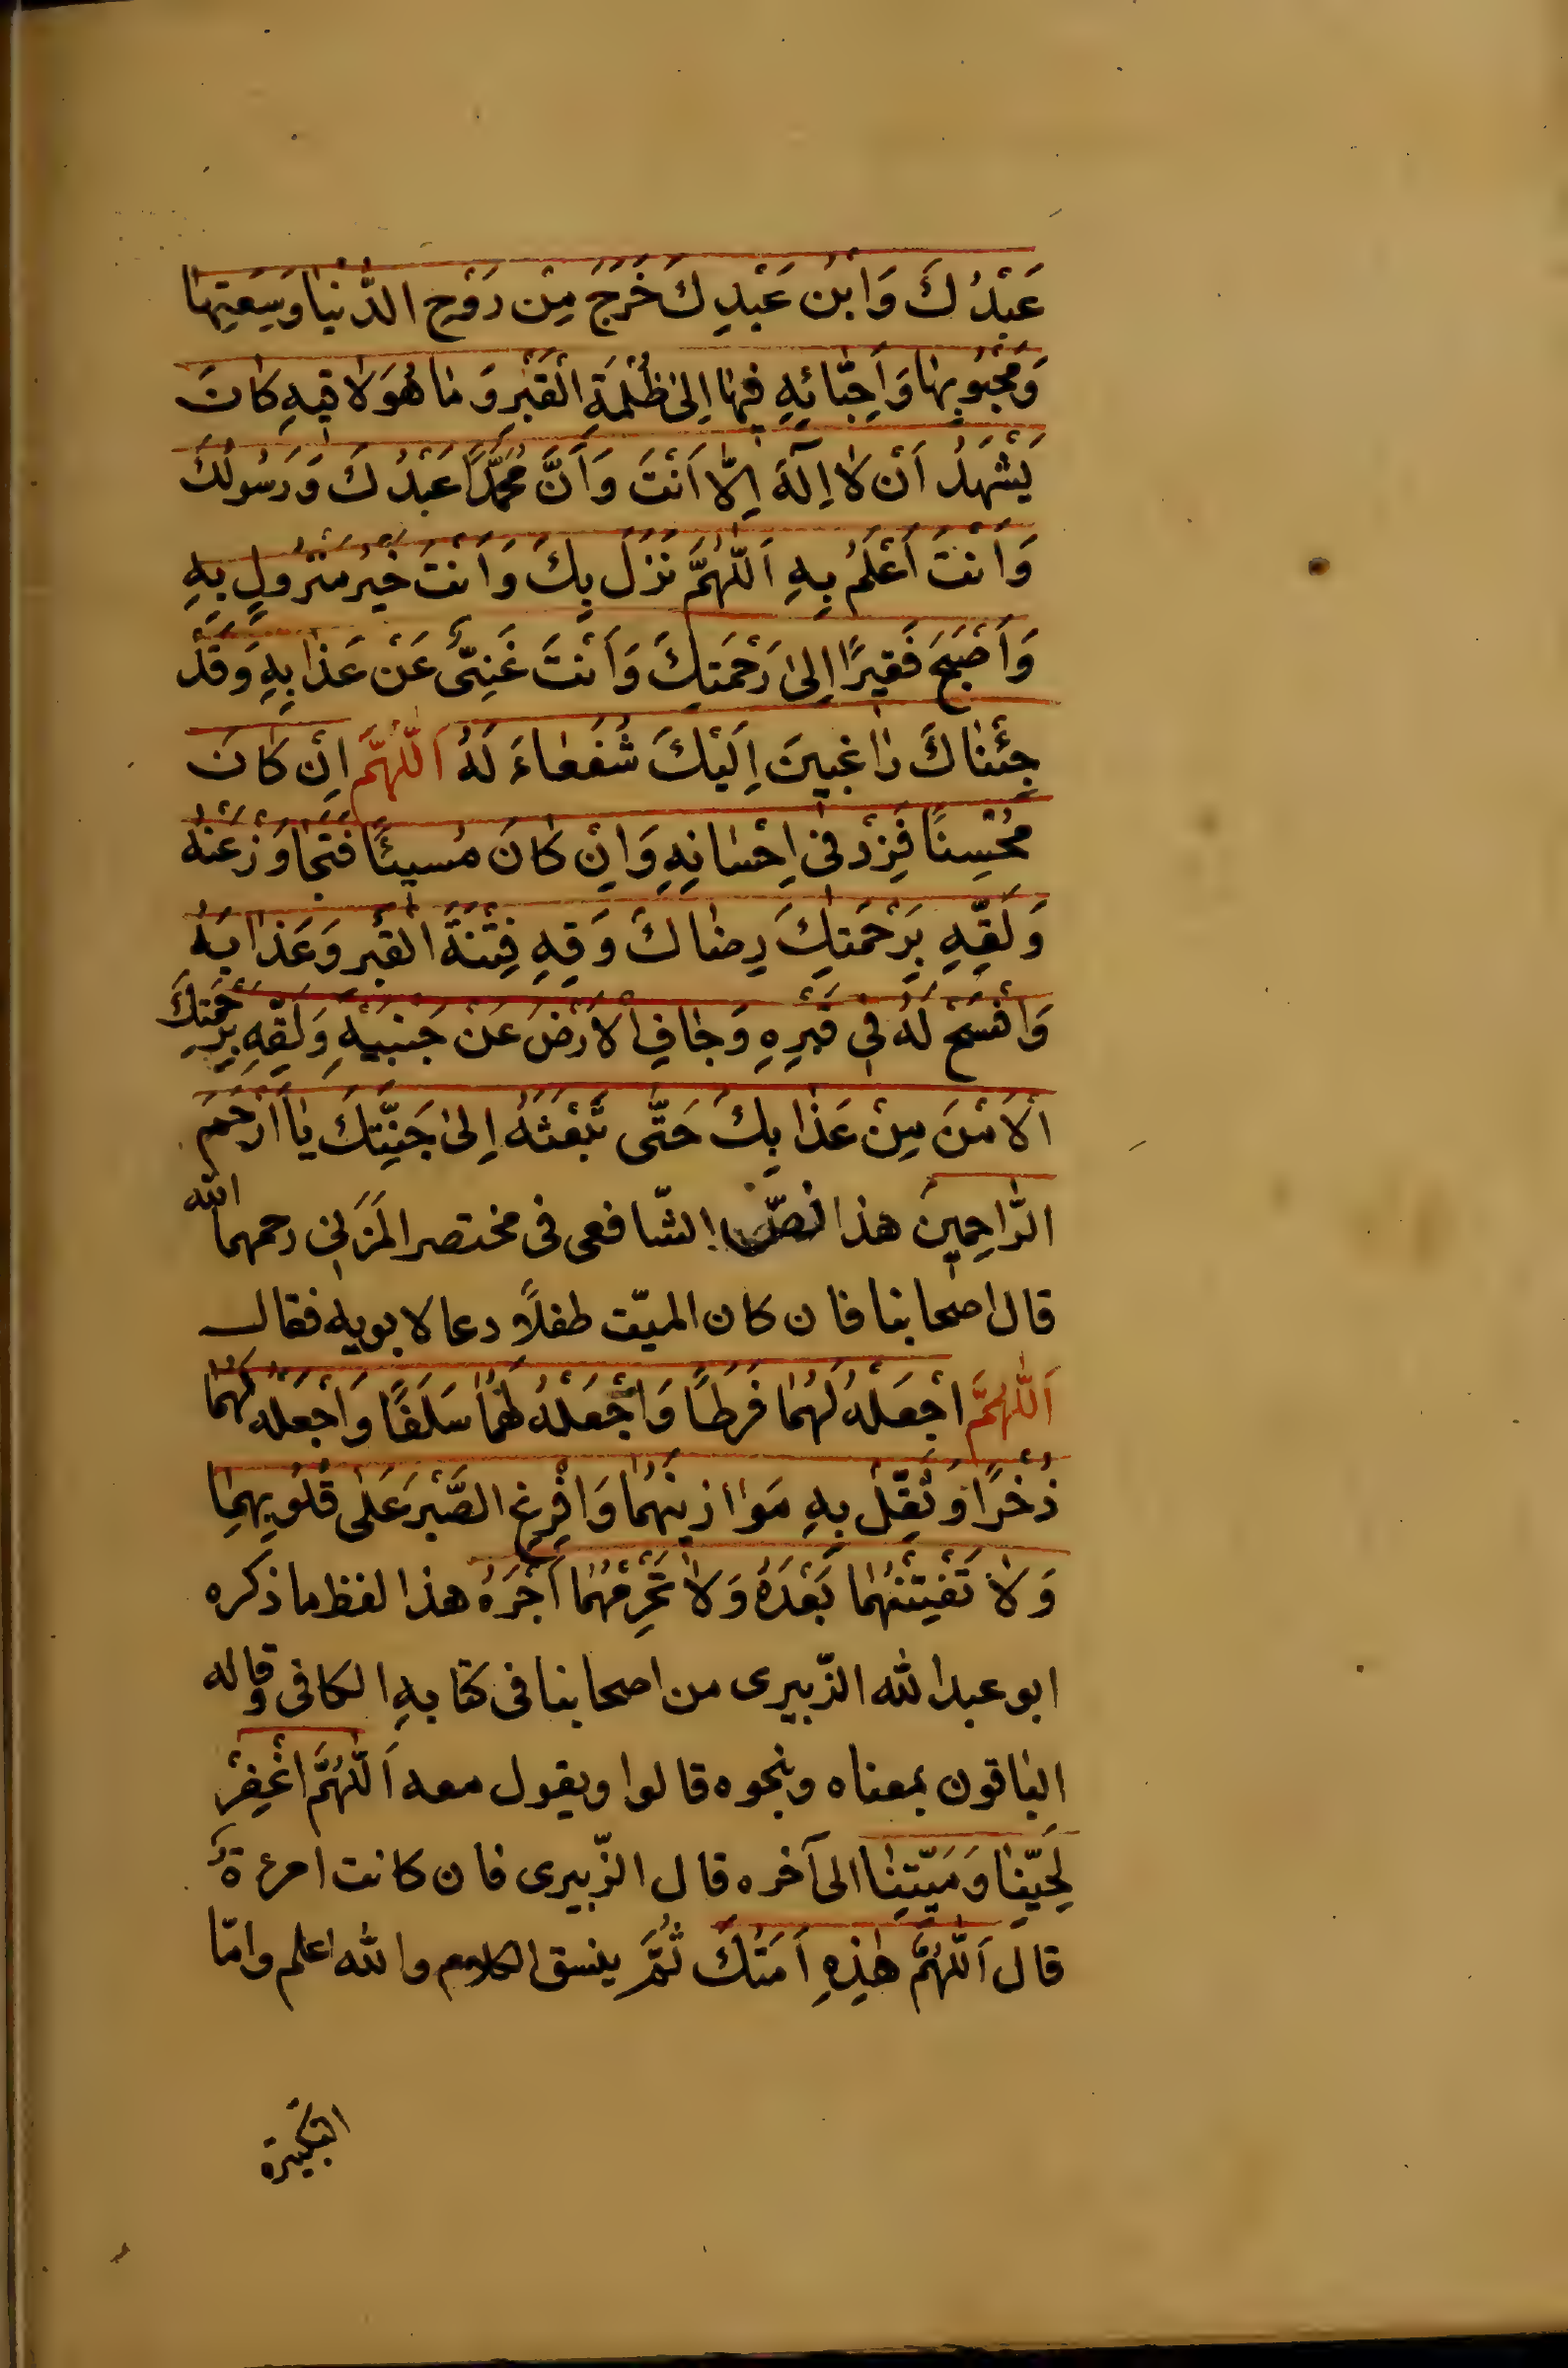 عَبْدُكَ وَابْنُ عَبْدِكَ خَرَجَ مِنْ رَوْحِ الدُّنْيَا وَسِعَتِهَا
وَمَحْبُوبِهَا وَاَحِبَّائِهِ فِيهَا اِلَى ظُلْمَةِ الْقَبْرِ وَمَا هُوَ لَاقِيهِ كَانَ
يَشْهَدُ اَنْ لَا اِلَهَ اِلَّا اَنْتَ وَاَنَّ مُحَمَّدًا عَبْدُكَ وَرَسُولُكَ
وَاَنْتَ اَعْلَمُ بِهِ اَللّٰهُمَّ نَزَلَ بِكَ وَاَنْتَ خَيْرُ مَنْزُولٍ بِهِ
وَاَصْبَحَ فَقِيرًا اِلَى رَحْمَتِكَ وَاَنْتَ غَنِىٌّ عَنْ عَذَابِهِ وَقَدْ
جِئْنَاكَ رَاغِبِينَ اِلَيْكَ شُفَعَاءَ لَهُ اَللّٰهُمَّ اِنْ كَانَ
مُحْسِنًا فَزِدْ فِى اِحْسَانِهِ وَاِنْ كَانَ مُسِيئًا فَتَجَاوَزْ عَنْهُ
وَلَقِّهِ بِرَحْمَتِكَ رِضَاكَ وَقِهِ فِتْنَةَ الْقَبْرِ وَعَذَابَهُ
وَافْسَحْ لَهُ فِى قَبْرِهِ وَجَافِ الْاَرْضَ عَنْ جَنْبَيْهِ وَلَقِّهِ بِرَحْمَتِكَ
الْاَمْنَ مِنْ عَذَابِكَ حَتَّى تَبْعَثَهُ اِلَى جَنَّتِكَ يَا اَرْحَمَ
الرَّاحِمِينَ هذا نصّ الشّافعى فى مختصر المُزَنى رحمهما الله
قال اصحابنا فان كان الميّت طفلاً دعا لابويه فقال
اَللّٰهُمَّ اجْعَلْهُ لَهُمَا فَرَطًا وَاجْعَلْهُ لَهُمَا سَلَفًا وَاجْعَلْهُ لَهُمَا
ذُخْرًا وَثَقِّلْ بِهِ مَوَازِينَهُمَا وَافْرِغِ الصَّبْرَ عَلَى قُلُوبِهِمَا
وَلَا تَفْتِنْهُمَا بَعْدَهُ وَلَا تَحْرِمْهُمَا اَجْرَهُ هذا لفظ ما ذكره
ابو عبد الله الزّبيرى من اصحابنا فى كتابهِ الكافى وقاله
الباقون بمعناه ونحوه قالوا ويقول معه اَللّٰهُمَّ اغْفِرْ
لِحَيِّنَا وَمَيِّتِنَا الى آخره قال الزّبيرى فان كانت امرءةً
قال اَللّٰهُمَّ هٰذِهِ اَمَتُكَ ثُمَّ ينسق الكلام والله اعلم وامّا
التكبيرة